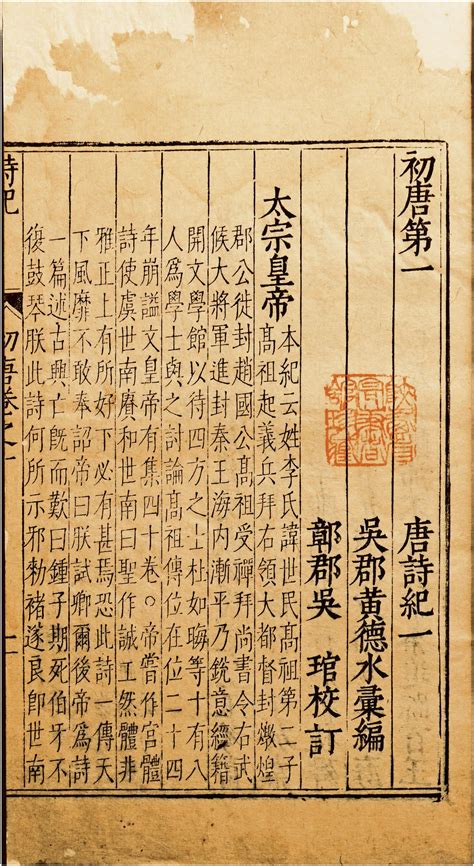 初唐第一　唐詩紀一
吳郡黃德水彙編
鄣郡吳　琯校訂
太宗皇帝
本紀云姓李氏諱世民高祖第二子
高祖起義兵拜右領大都督封燉煌
郡公徙封趙國公高祖受禪拜尚書令右武
候大將軍進封秦王海内漸平乃銳意經籍
開文學館以待四方之士杜如晦等十有八
人爲學士與之討論高祖傳位在位二十四
年崩謚文皇帝有集四十卷○帝嘗作宮體
詩使虞世南賡和世南曰聖作誠工然體非
雅正上有所好下必有甚焉恐此詩一傳天
下風靡不敢奉詔帝曰朕試卿爾後帝爲詩
一篇述古興亡旣而歎曰鍾子期死伯牙不
復鼓琴朕此詩何所示邪勑褚遂良即世南
詩紀
初唐卷之一
一